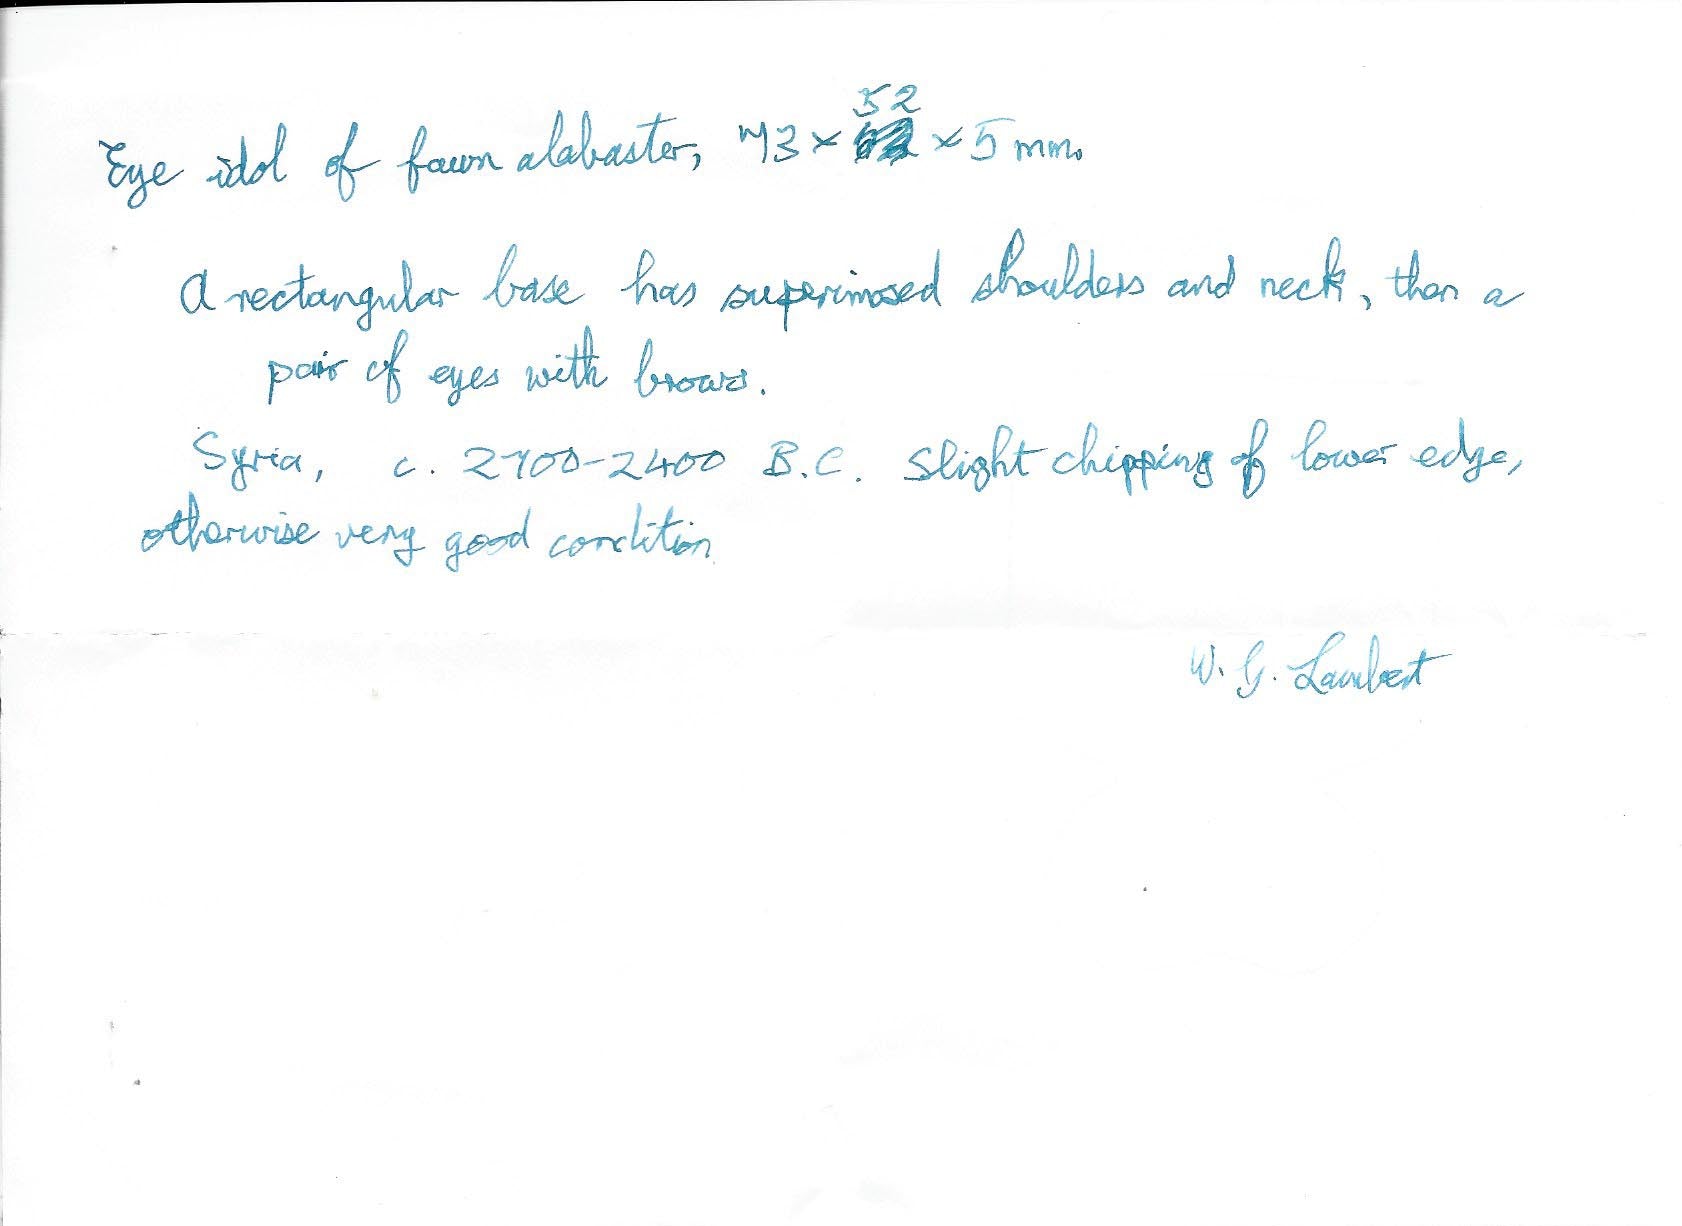 Eye idol of fawn alabaster, 73 × 52 × 5 mm.
A rectangular base has superimosed shoulders and neck, then a
pair of eyes with brows.
Syria, c. 2700-2400 B.C. Slight chipping of lower edge,
otherwise very good condition
W. G. Lambert